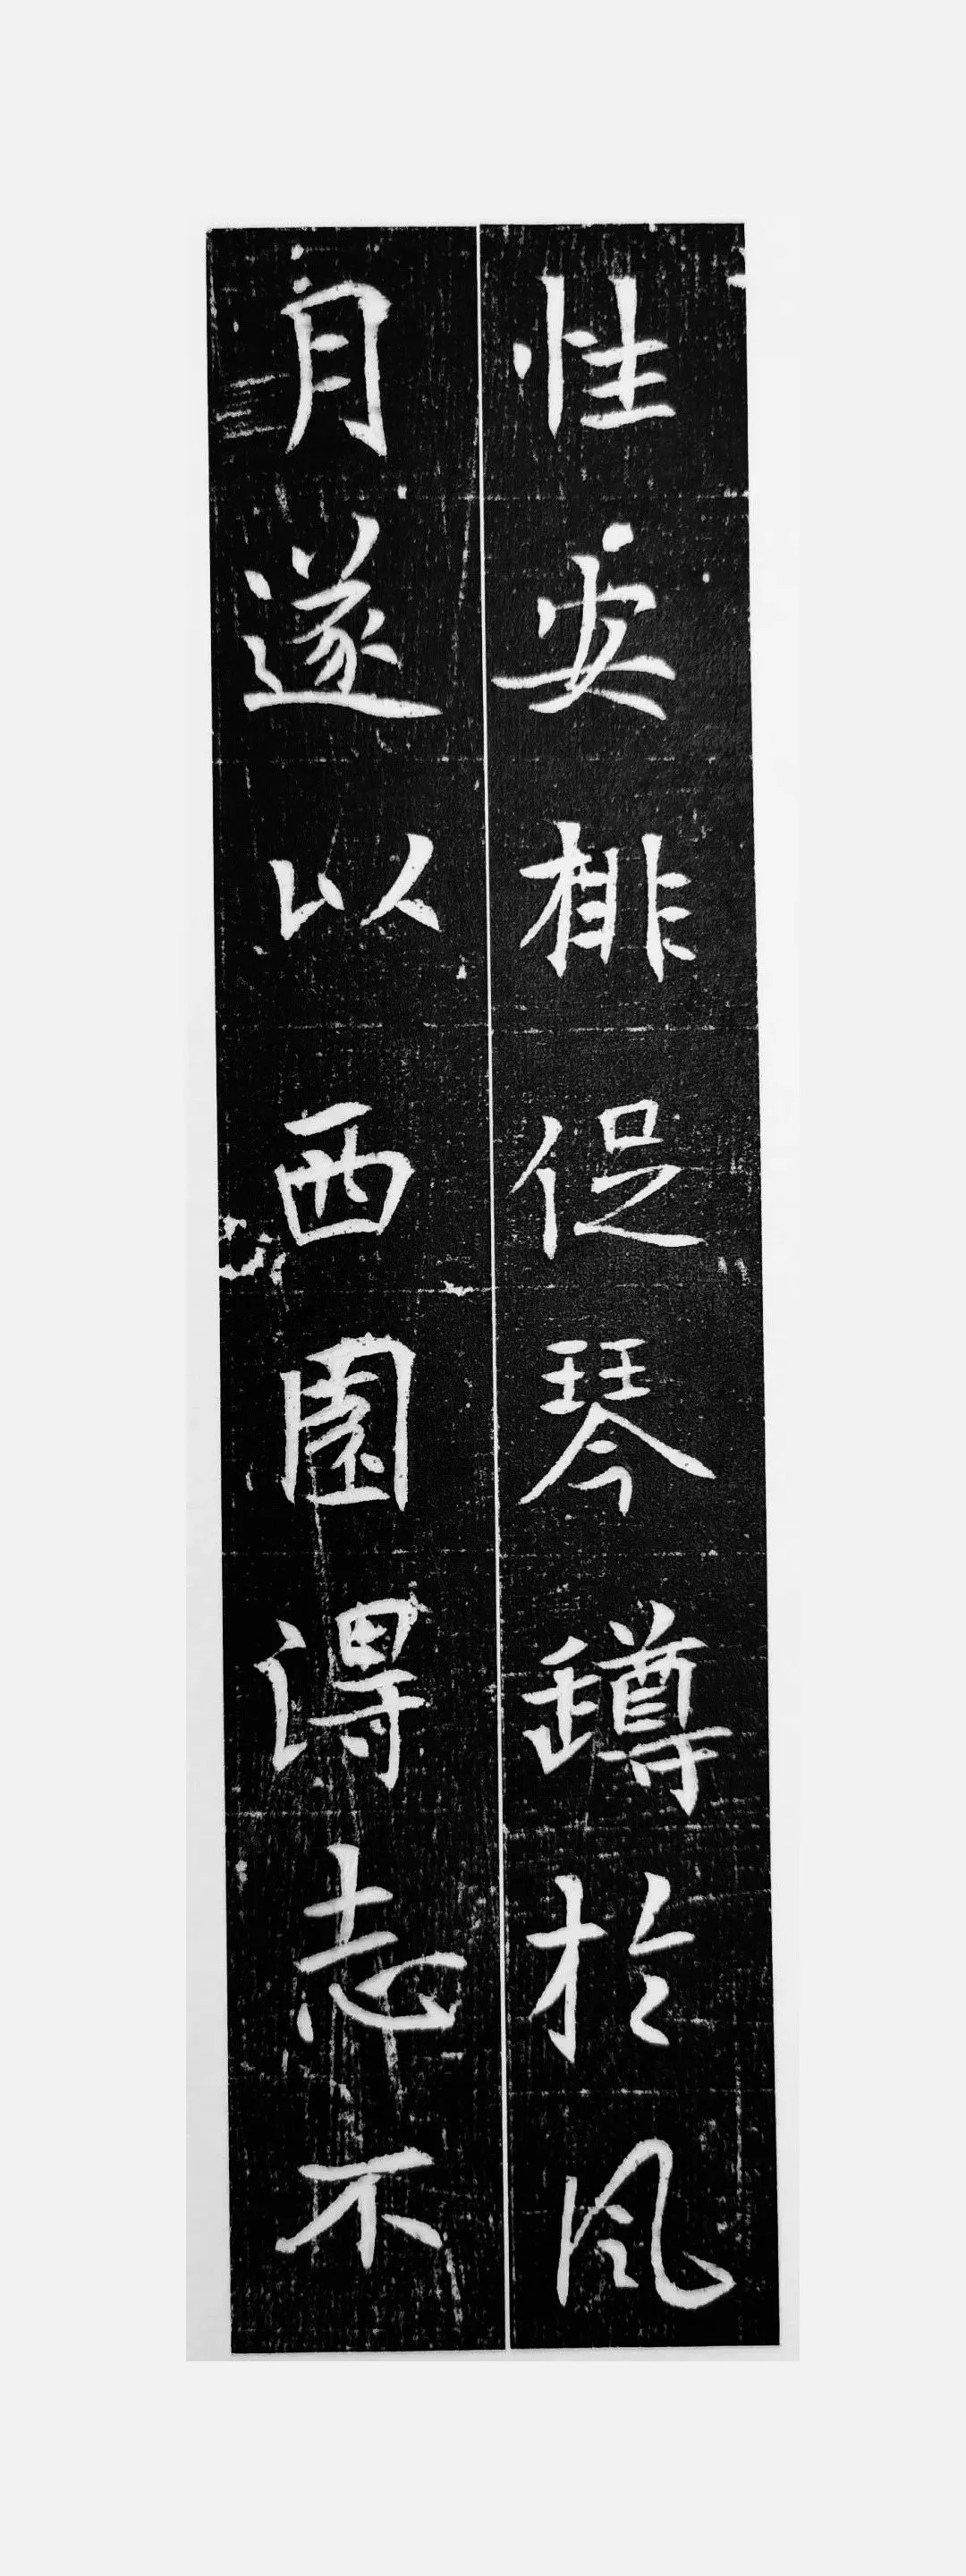 性安排促琴罇於風
月遂以西園得志不